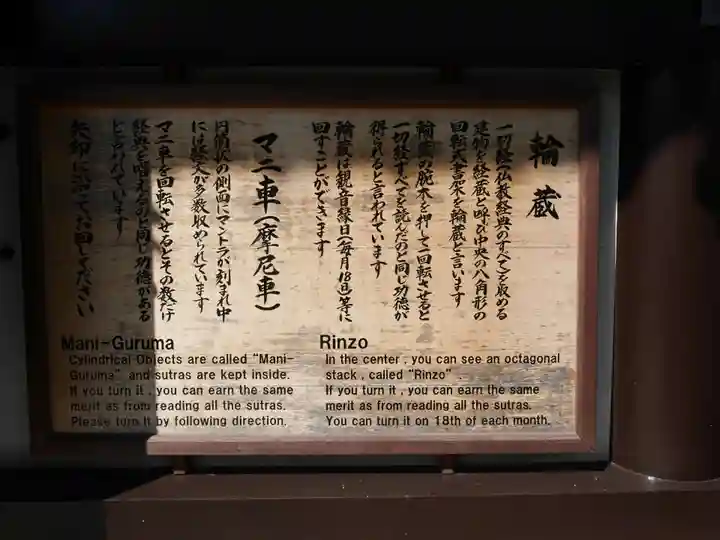 輪蔵
一切経(仏教経典のすべて)を収める
建物を経蔵と呼び中央の八角形の
回転式書架を輪蔵と言います
輪蔵の腕木を押して一回転させると
一切経すべてを読んだのと同じ功徳が
得られると言われています
輪蔵は観音縁日(毎月18日)等に
回すことができます
マニ車(摩尼車)
円筒状の側面にマントラが刻まれ中
には経文が多数収められています
マニ車を回転させるとその数だけ
経典を唱えるのと同じ功徳がある
と言われています
矢印に沿ってお回しください
Mani-Guruma
Cylindrical Objects are called "Mani-
Guruma" and sutras are kept inside.
If you turn it , you can earn the same
merit as from reading all the sutras.
Please turn it by following direction.
Rinzo
In the center , you can see an octagonal
stack , called "Rinzo"
If you turn it , you can earn the same
merit as from reading all the sutras.
You can turn it on 18th of each month.